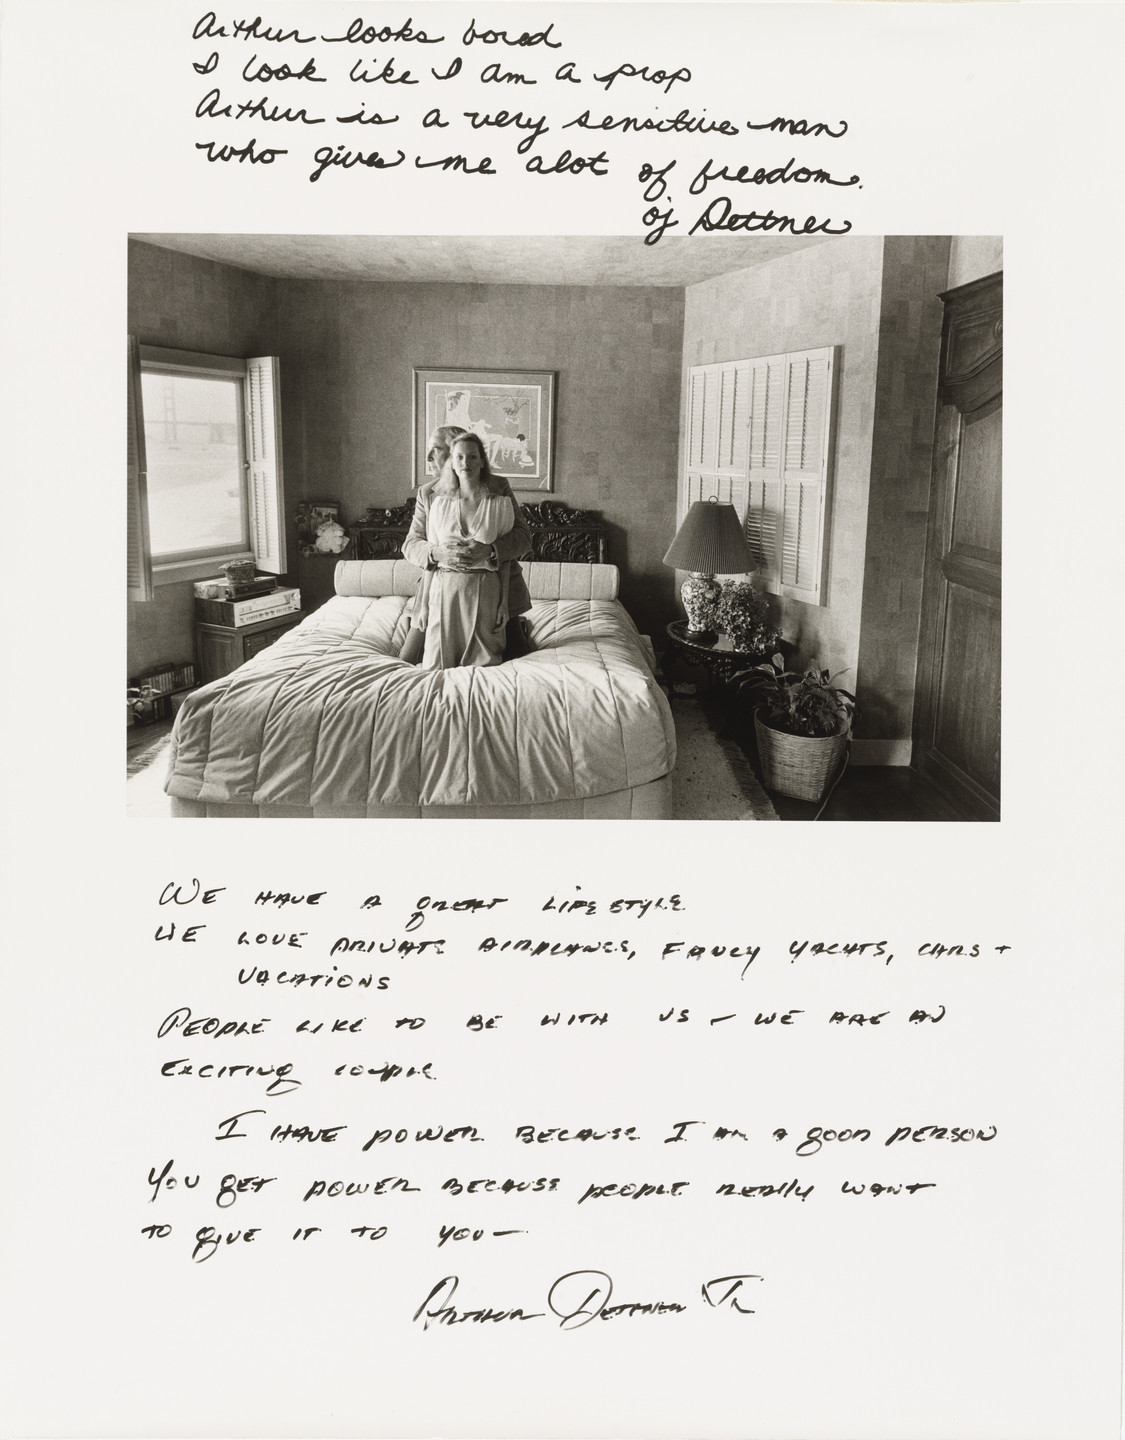 Arthur looks bored
I look like I am a prop
Arthur is a very sensitive man
who gives me alot of freedom.
oj Dettner
WE HAVE A great LIFE STYLE
WE LOVE PRIVATE AIRPLANES, FANCY YACHTS, CARS +
VACATIONS
PEOPLE LIKE TO BE WITH US - WE ARE AN
EXCITING COUPLE
I HAVE POWER BECAUSE I AM A good PERSON
YOU GET POWER BECAUSE PEOPLE REALLY WANT
TO GIVE IT TO YOU—
ARTHUR DETTNER Jr